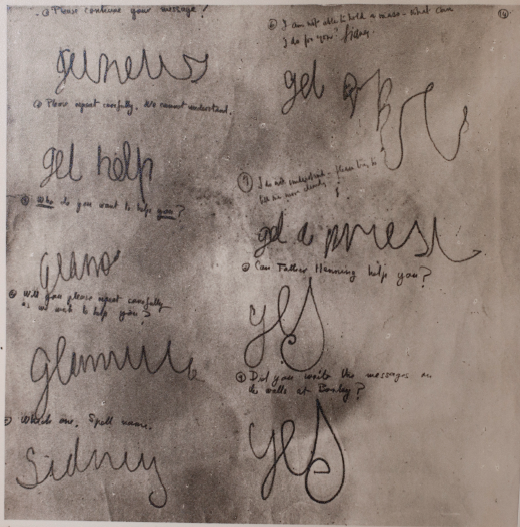 Please continue your message!
Please repeat carefully. We cannot understand.
get help
Who do you want to help you?
Will you please repeat carefully
as we wish to help you?
Glanville
Which one. Spell name.
Sidney
I am not able to hold a
do for you?
get
I do not understand - please
get a priest
Can Father Henning help you?
yes
Did you write the messages on
the walls at Borley?
yes